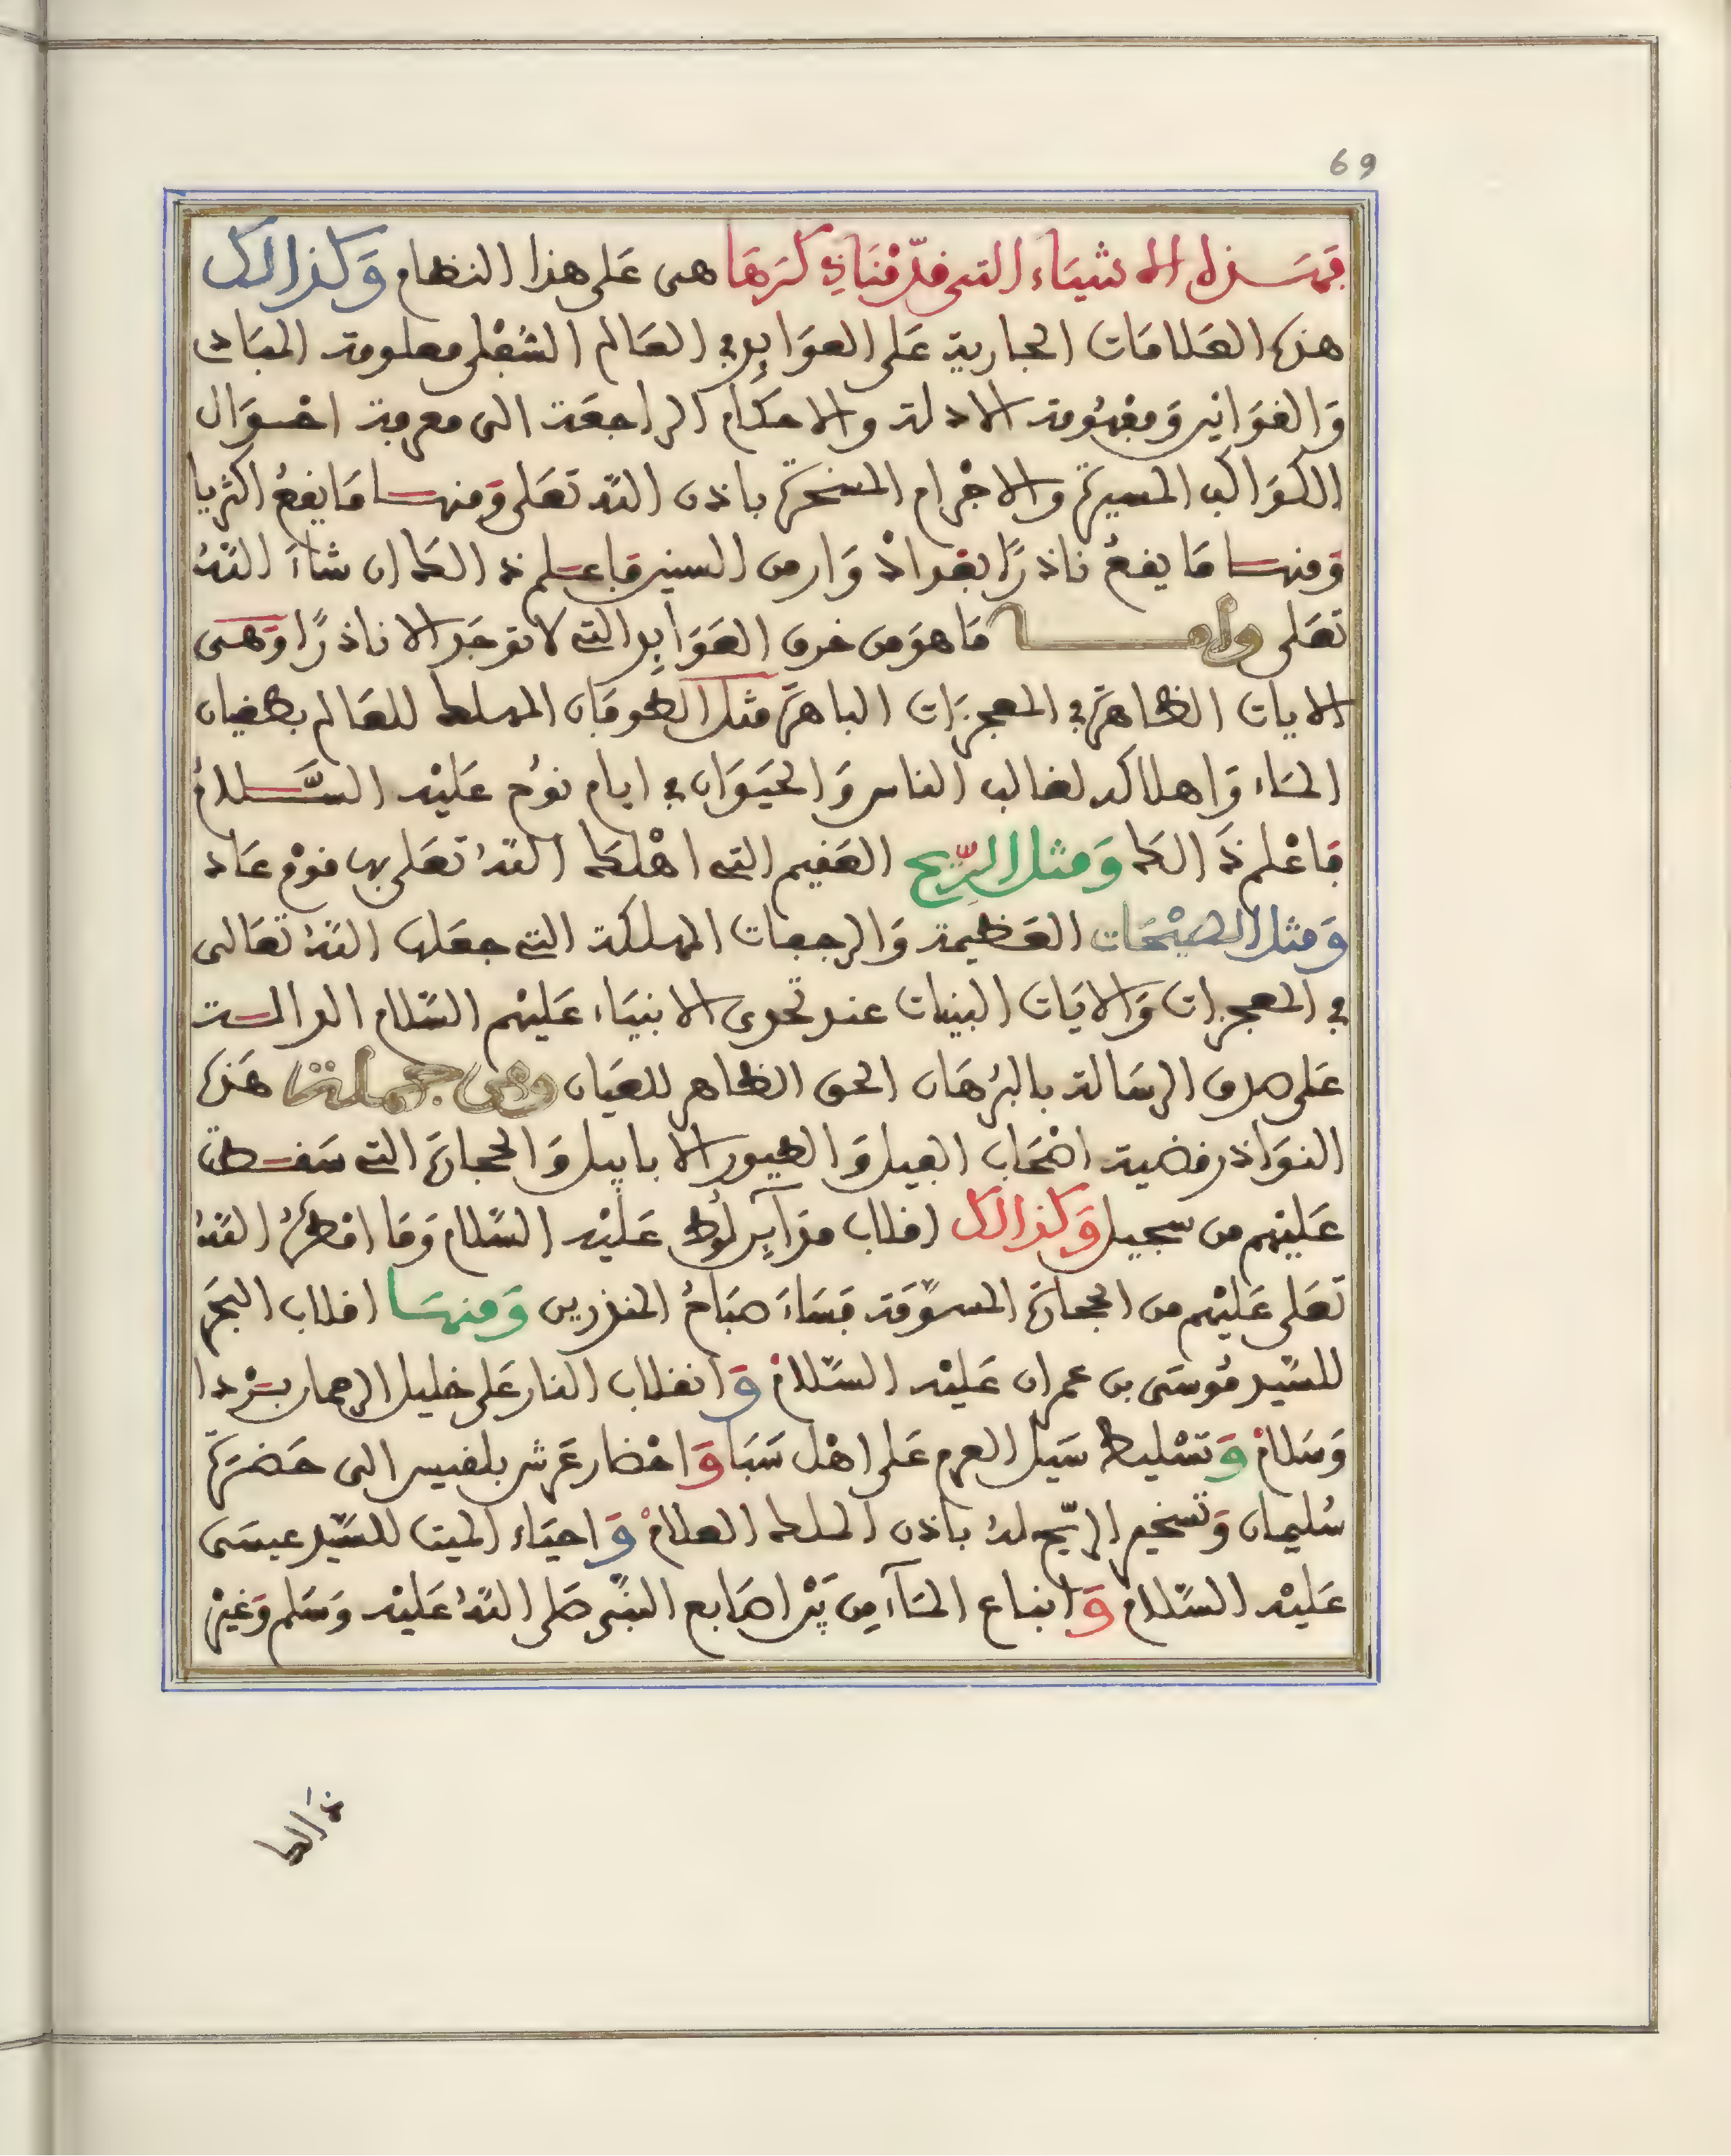 69
فهـذه الاشياء التى قدّمْنَا ذِكرَهَا هى عَلى هذا النظام وَكذالك
هذه العَلامَات الجارية عَلى العوَايدِ فى العَالم السُّفْلى معلومة المبَادى
وَالقوَانين وَمفْهُومة الادلة والاحكام الراجعَة الى معرفة احْـوَال
الكوَاكب المسيرة والاجْرام المسخرة باذن اللّه تعَلى وَمنهـا مَا يقعُ اكثريا
وَمنهـا مَا يقعُ ناذرًا بقرانْ وَار من السنين فَاعـلم ذالك ان شاءَ اللّهُ
تعَلى وأمـــا مَا هوَ من خرق العَوَايدِ التى لا توجَد الا ناذرًا وَهـى
الايات الظاهرَة فى المعجزَات الباهرَة مثل الطوفَان المهلك للعَالم بطغيان
المَاء وَاهلاكه لغالب الناس وَالحيَوَان فى ايام نوُح عَليْه السَّــلامُ
فَاعْلم ذَالك وَمثل الرّيح العَقيم التى اهْلك اللّهُ تعَلى بها قوْم عَاد
وَمثل الصيْحَات العَظيمة وَالرجفات المهلكة التى جعَلها اللّهُ تعَالى
فى المعجزات وَالايَات البينات عند تحَدى الانبيَاء عَليْهم السّلام الدالـة
عَلى صدق الرسَالة بالبرْهَان الحق الظاهر للعيَان وَمن جمـلة هَذه
النوَاذر قضية اصْحَاب الفيل وَالطيور الابابيل وَالحجارَة التى سَقـطت
عَليْهم من سجيل وَكذالك اقلاب مدَآيِن لوُط عَليْه السّلام وَمَا امْطرَهُ اللّهُ
تعَلى عَليْهم من الحجارَة المسوّمَة فسَاءَ صبَاحُ المنذرين وَمنهـَا اقلاب البحْر
للسّيد مُوسَى بن عمران عَليْه السّلامُ وَانقلاب النار عَلى خليل الرحمان بـرْدا
وَسَلامٌ وَتسْليط سَيْل العرم عَلى اهْل سَبَا وَاحْضار عَرش بلقيس الى حَضرَة
سُليمان وَتسْخير الرّيح لهُ باذن الملك العلامْ وَاحيَاء الميت للسّيد عيسَى
عَليْه السّلام وَانباع المَآءِ من بَيْن اصَابع النبّى صَلى اللّهُ عَليْه وَسَلم وَغيْر
ذَالك